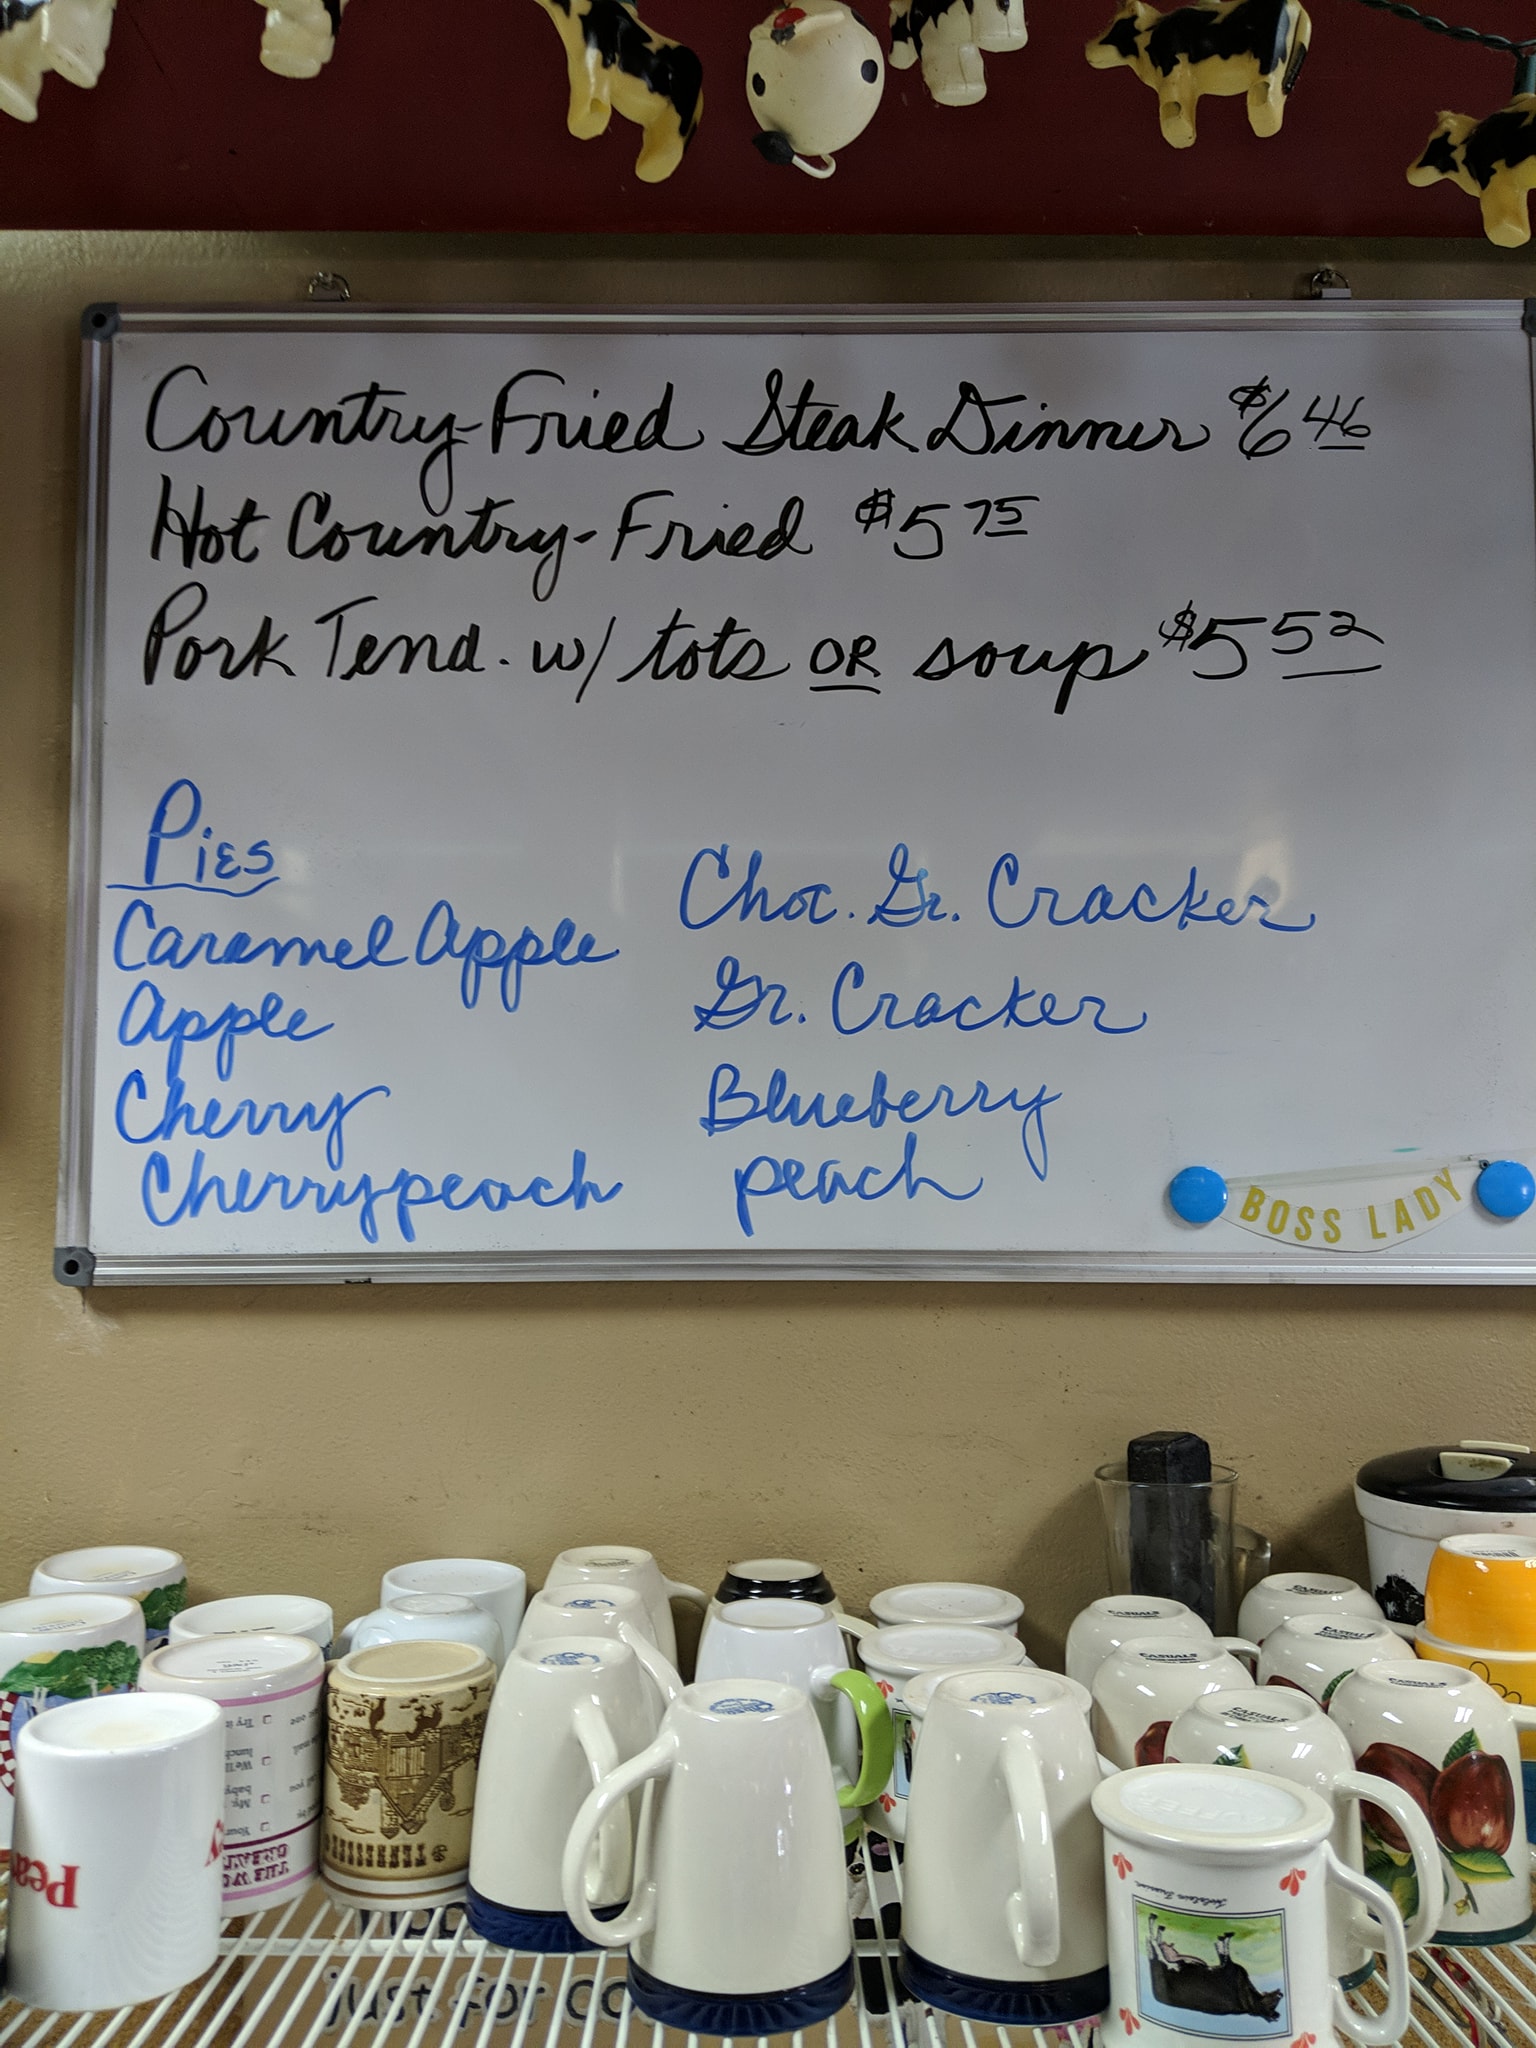 Country-Fried Steak Dinner $6 46
Hot Country-Fried $5 75
Pork Tend. w/ tots OR soup $5 52
Pies
Caramel Apple
Apple
Cherry
Cherrypeach
Choc. Gr. Cracker
Gr. Cracker
Blueberry
peach
BOSS LADY
CASUALS
CASUALS
CASUALS
CASUALS
CASUALS
Pea
TENNESSEE
just for co